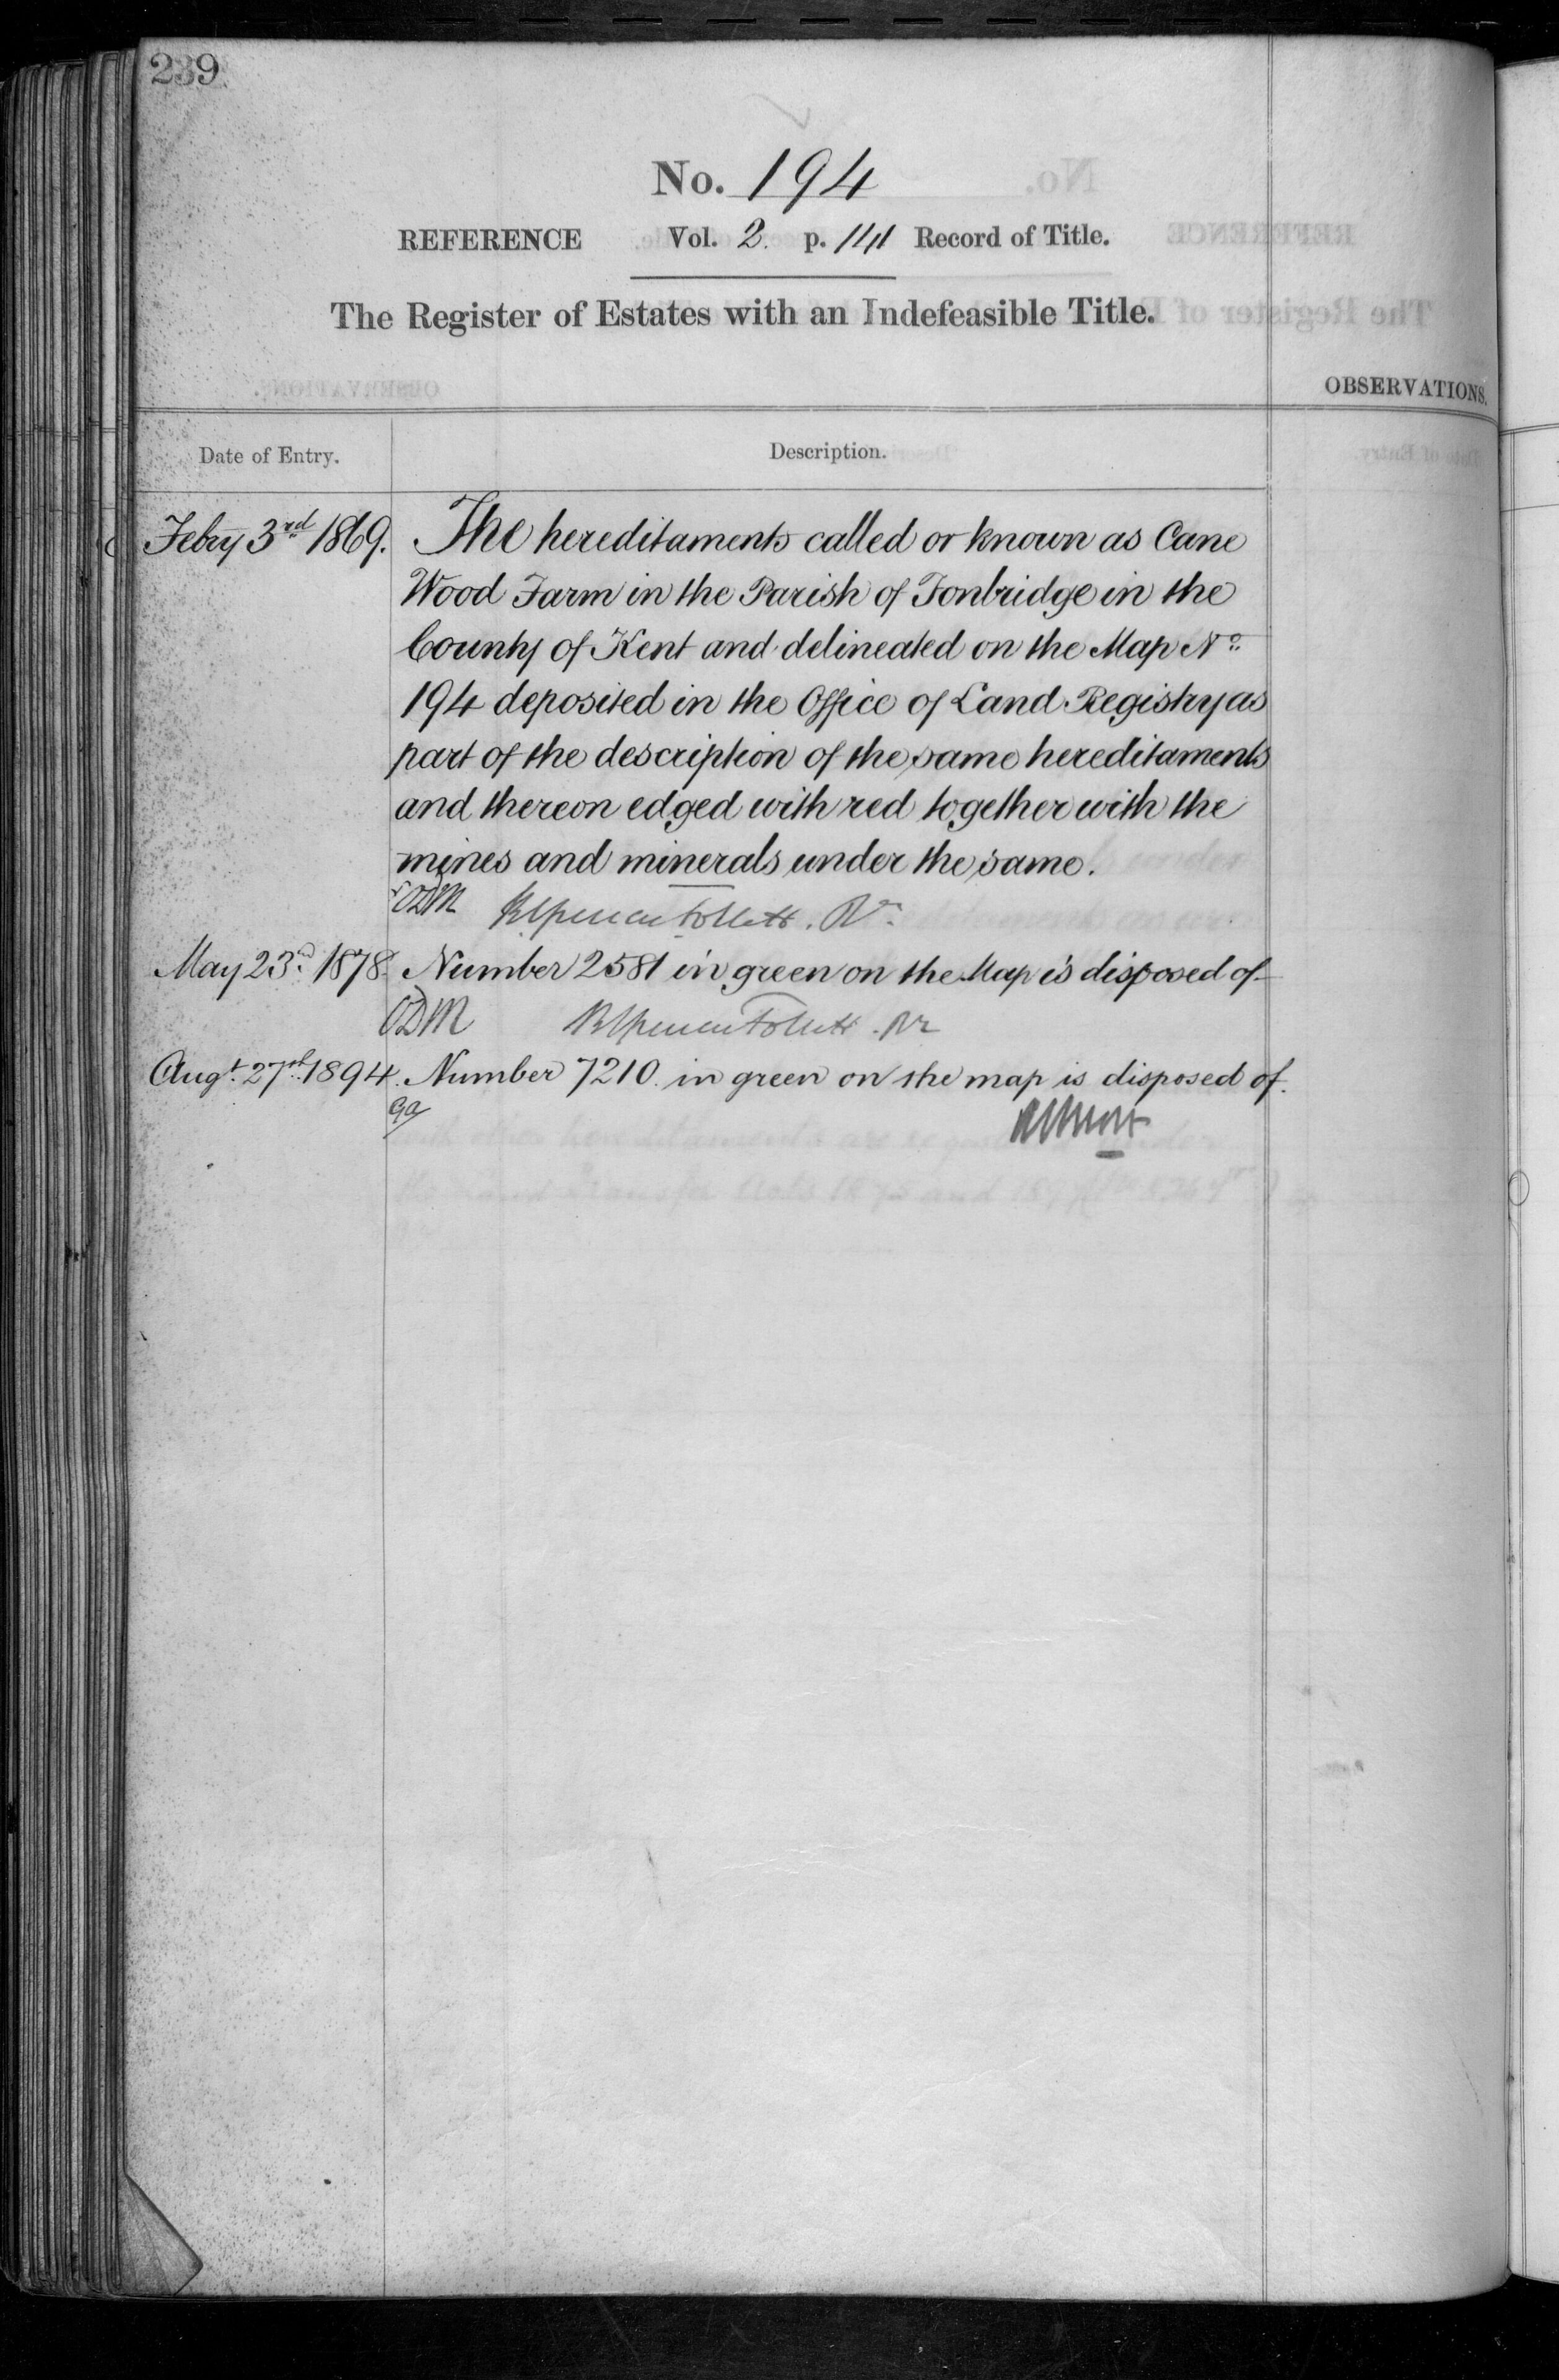 239
No. 194
REFERENCE Vol. 2. p. 141 Record of Title.
The Register of Estates with an Indefeasible Title.
OBSERVATIONS.
Date of Entry. Description.
Febry 3rd 1869. The hereditaments called or known as Cane
Wood Farm in the Parish of Tonbridge in the
County of Kent and delineated on the Map No.
194 deposited in the Office of Land Registry as
part of the description of the same hereditaments
and thereon edged with red together with the
mines and minerals under the same.
ODM Follett. Rr.
May 23rd 1878. Number 2581 in green on the Map is disposed of
ODM Follett. Rr
Augt. 27th 1894. Number 7210 in green on the map is disposed of.